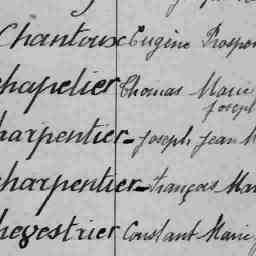 Chantoux Eugène Prosper
Chapelier Thomas Marie
Joseph
harpentier - Joseph Jean M
harpentier - François Mar
hevestrier Constant Marie